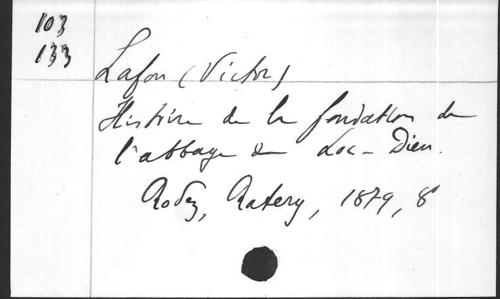 103
133
Lafon (Victor)
Histoire de la fondation de
l'abbaye de Loc-Dieu.
Rodez, Ratery, 1879, 8°